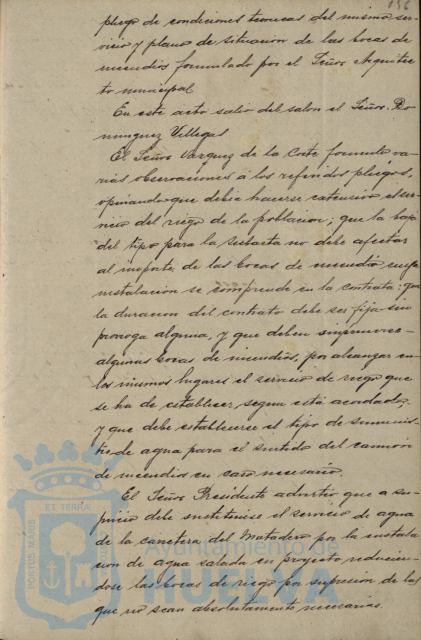 156
pliego de condiciones tecnicas del mismo ser-
vicio y plano de situacion de las bocas de
incendios formulado por el Señor Arquitec-
to municipal
En este acto salió del salon el Señor Do-
minguez Villegas
El Señor Vazquez de la Corte formuló va-
rias observaciones á los referidos pliegos,
opinando que debia hacerse extensivo el ser-
vicio del riego de la poblacion; que la baja
del tipo para la subasta no debe afectar
al importe de las bocas de incendio cuya
instalacion se comprende en la contrata: que
la duracion del contrato debe ser fija sin
proroga alguna, y que deben suprimirse
algunas bocas de incendios, por alcanzar en
los mismos lugares el servicio de riego que
se ha de establecer, segun está acordado,
y que debe establecerse el tipo de suminis-
tro de agua para el surtido del camion
de incendios en caso necesario.
El Señor Presidente advirtió que a su
juicio debe sustituirse el servicio de agua
de la carretera del Matadero por la instala-
cion de agua salada en proyecto reducien-
dose las bocas de riego por supresion de las
que no sean absolutamente necesarias.
PORTUS MARIS ET TERRÆ CUSTODIA
Ayuntamiento de
HUELVA